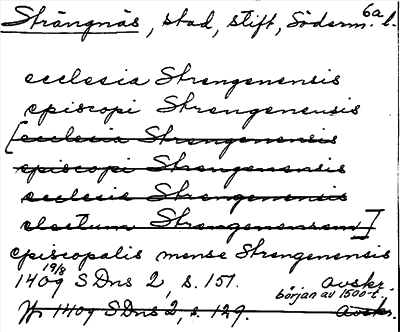 6a
Strängnäs, stad, stift, Söderm. l.
ecclesia Strengenensis
episcopi Strengenensis
[ecclecia Strengenensis
episcopi Strengenensis
ecclesie Strengenensis
electum Strengenensem]
episcopalis mense Strengenensis
1409 19/8 SDns 2, s. 151. avskr.
början av 1500-t.
1409 SDns 2, s. 129. avskr.